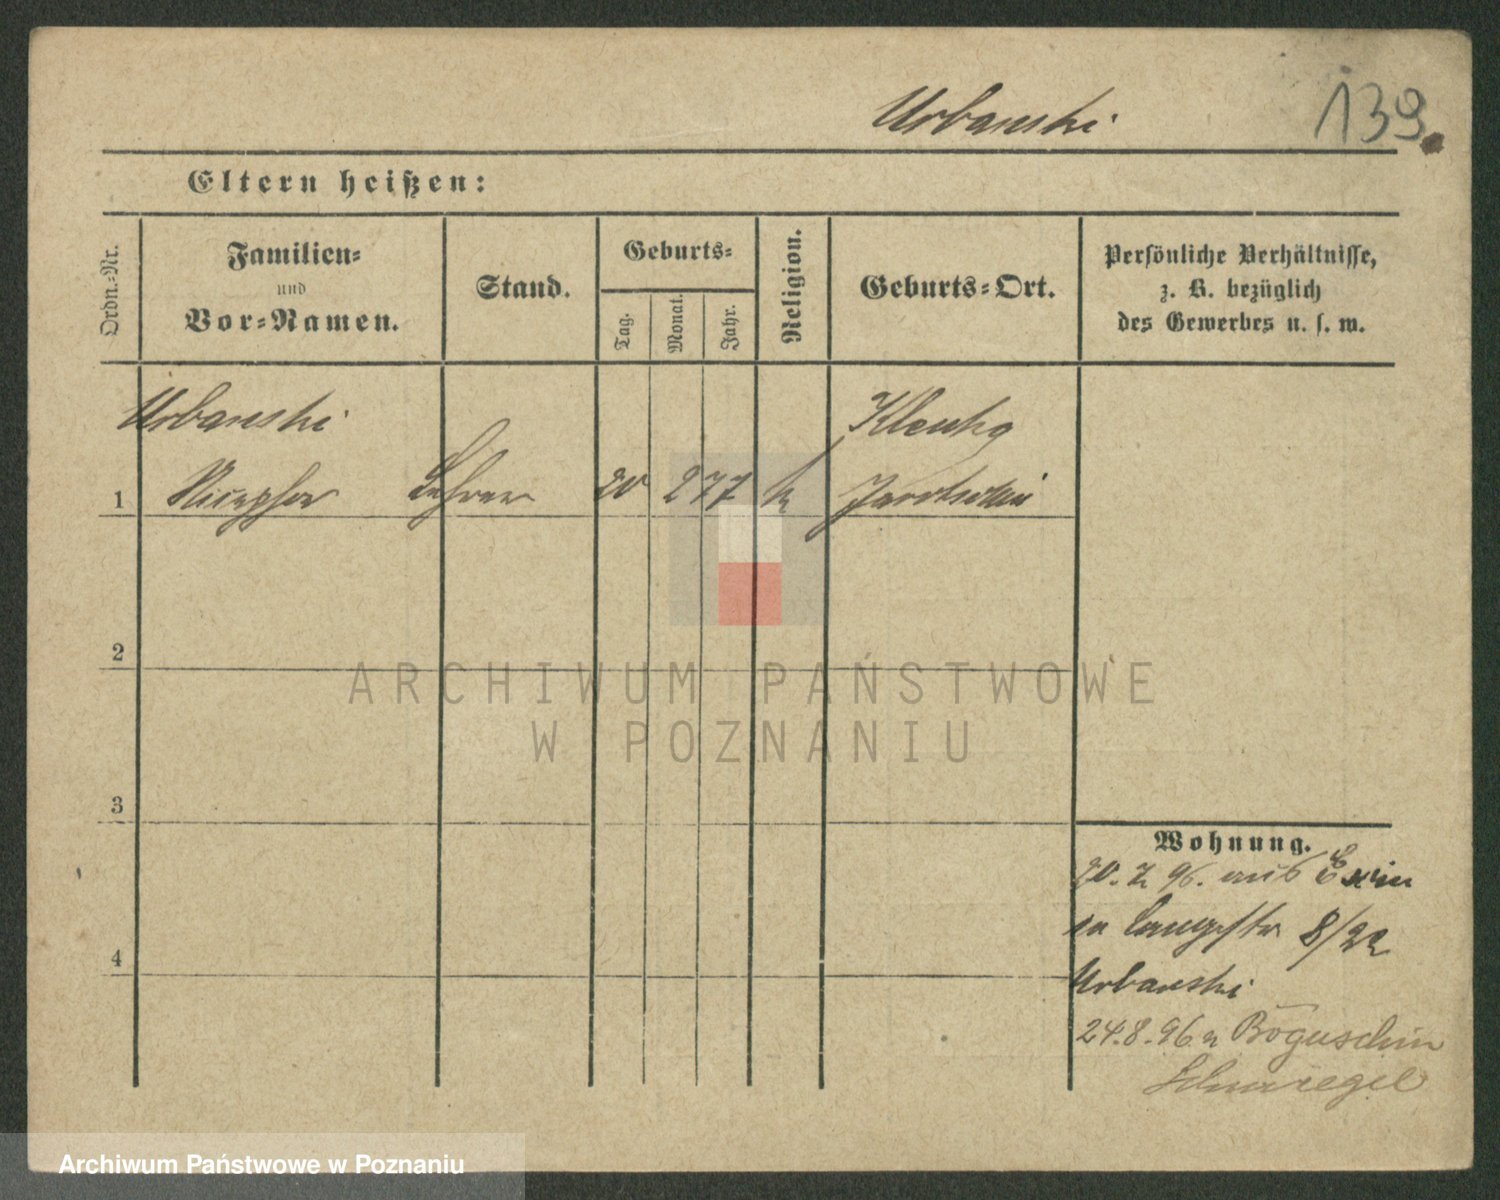 Urbanski
139.
Eltern heißen:
Ordn.-Nr.
Familien-
und
Vor-Namen.
Stand.
Geburts-
Tag.
Monat.
Jahr.
Religion.
Geburts-Ort.
Persönliche Verhältnisse,
z. B. bezüglich
des Gewerbes u. s. w.
Urbanski
Klenka
1 Lehrer 20 2 77 k Jarotschin
2
3
4
Wohnung.
20. 7. 96. aus Exin
Langestr 8/22
Urbanski
24.8.96 n Boguschin
ARCHIWUM PAŃSTWOWE
W POZNANIU
Archiwum Państwowe w Poznaniu